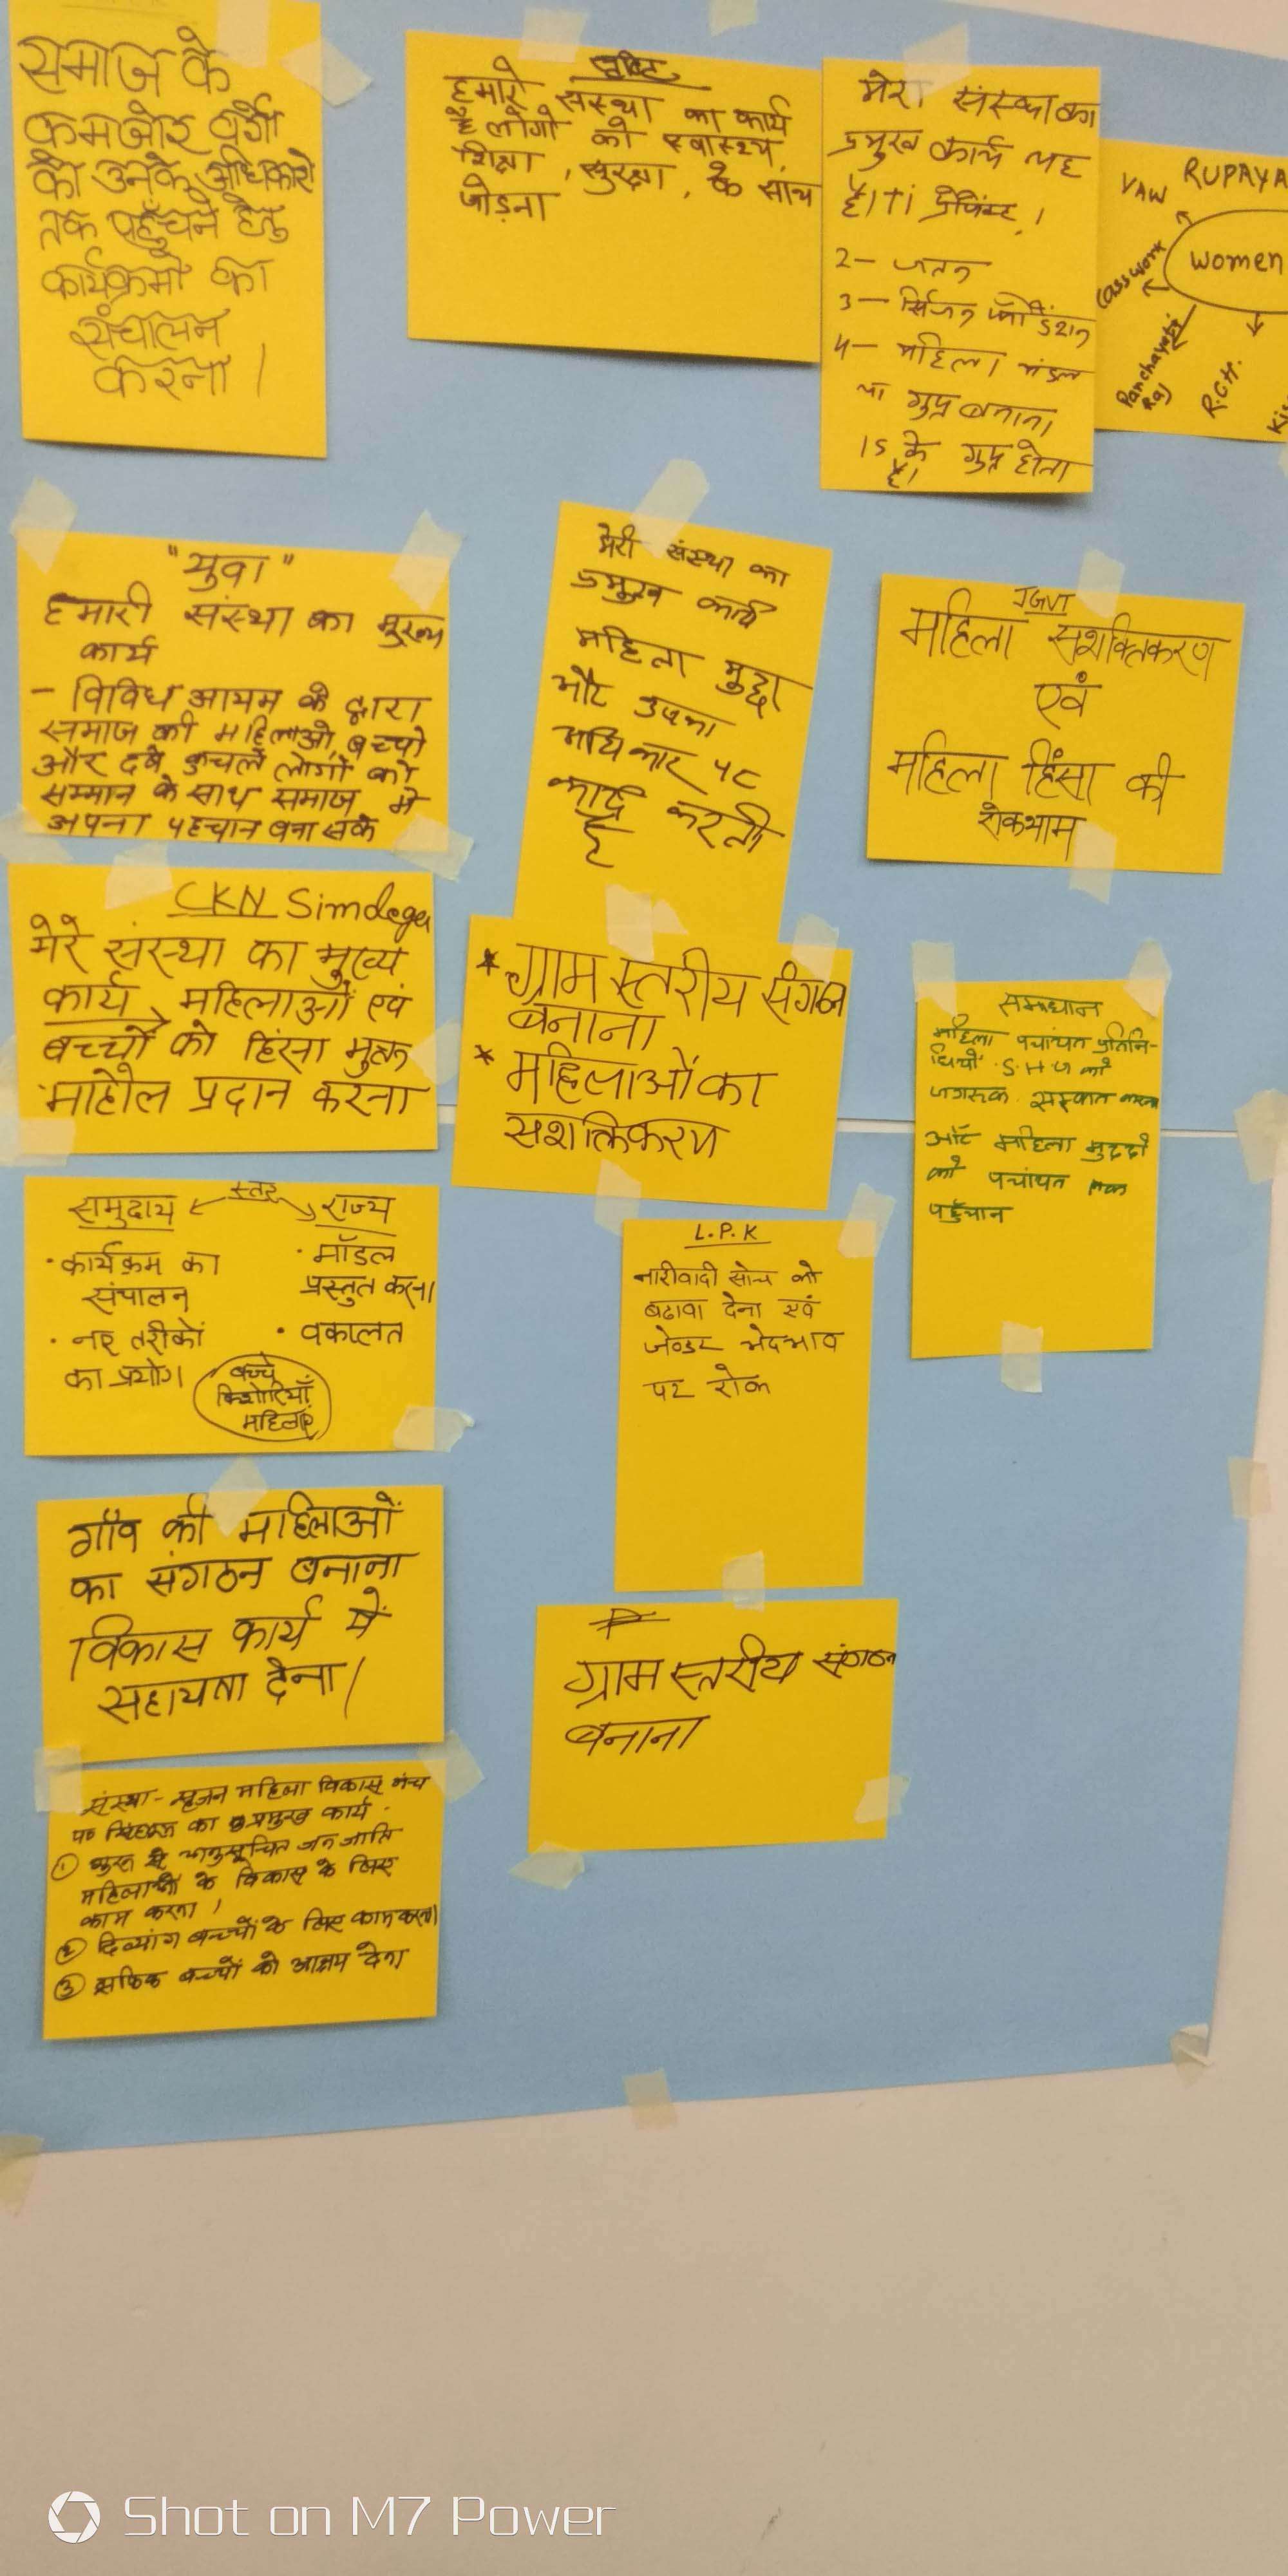 समाज के
कमजोर वर्गो
को उनके अधिकारो
तक पहुँचने हेतु
कार्यक्रमो का
संचालन
करना।
हमारे संस्था का कार्य
है लोगो को स्वास्थ्य,
शिक्षा, सुरक्षा, के साथ
जोड़ना
मेरा संस्था का
प्रमुख कार्य यह
है।
2- जतन
3-
4- महिला मंडल
या ग्रुप बनाना
15 के ग्रुप होता
है।
RUPAYA
VAW
women
Casswork
Panchayati
Raj
R.C.H.
"युवा"
हमारी संस्था का मुख्य
कार्य
- विविध आयम के द्वारा
समाज की महिलाओ, बच्चो
और दबे कुचले लोगों को
सम्मान के साथ समाज मे
अपना पहचान बना सके
मेरी संस्था का
प्रमुख कार्य
महिला मुद्दा
और उसका
अधिकार पर
कार्य करती
है
महिला सशक्तिकरण
एवं
महिला हिंसा की
रोकथाम
CKN Simdega
मेरे संस्था का मुख्य
कार्य महिलाओं एवं
बच्चों को हिंसा मुक्त
माहौल प्रदान करना
* ग्राम स्तरीय संगठन
बनाना
* महिलाओं का
सशक्तिकरण
समाधान
महिला पचांयत प्रतिनि-
धियों S.H.G को
जगरूक
और महिला मुददो
को पचांयत तक
पहुँचान
समुदाय स्तर राज्य
· कार्यक्रम का
संचालन
· नए तरीकों
का प्रयोग।
· मॉडल
प्रस्तुत करना
· वकालत
बच्चे
किशोरियाँ
महिलाएं
L.P.K
नारीवादी सोच को
बढावा देना एवं
जेण्डर भेदभाव
पर रोक
गाँव की महिलाओं
का संगठन बनाना
विकास कार्य में
सहायता देना।
ग्राम स्तरीय संगठन
बनाना
संस्था - सृजन महिला विकास मंच
का प्रमुख कार्य
① अनुसूचित जन जाति
महिलाओं के विकास के लिए
काम करना।
② दिव्यांग बच्चों के लिए काम करना।
③ बच्चों को आश्रय देना
Shot on M7 Power